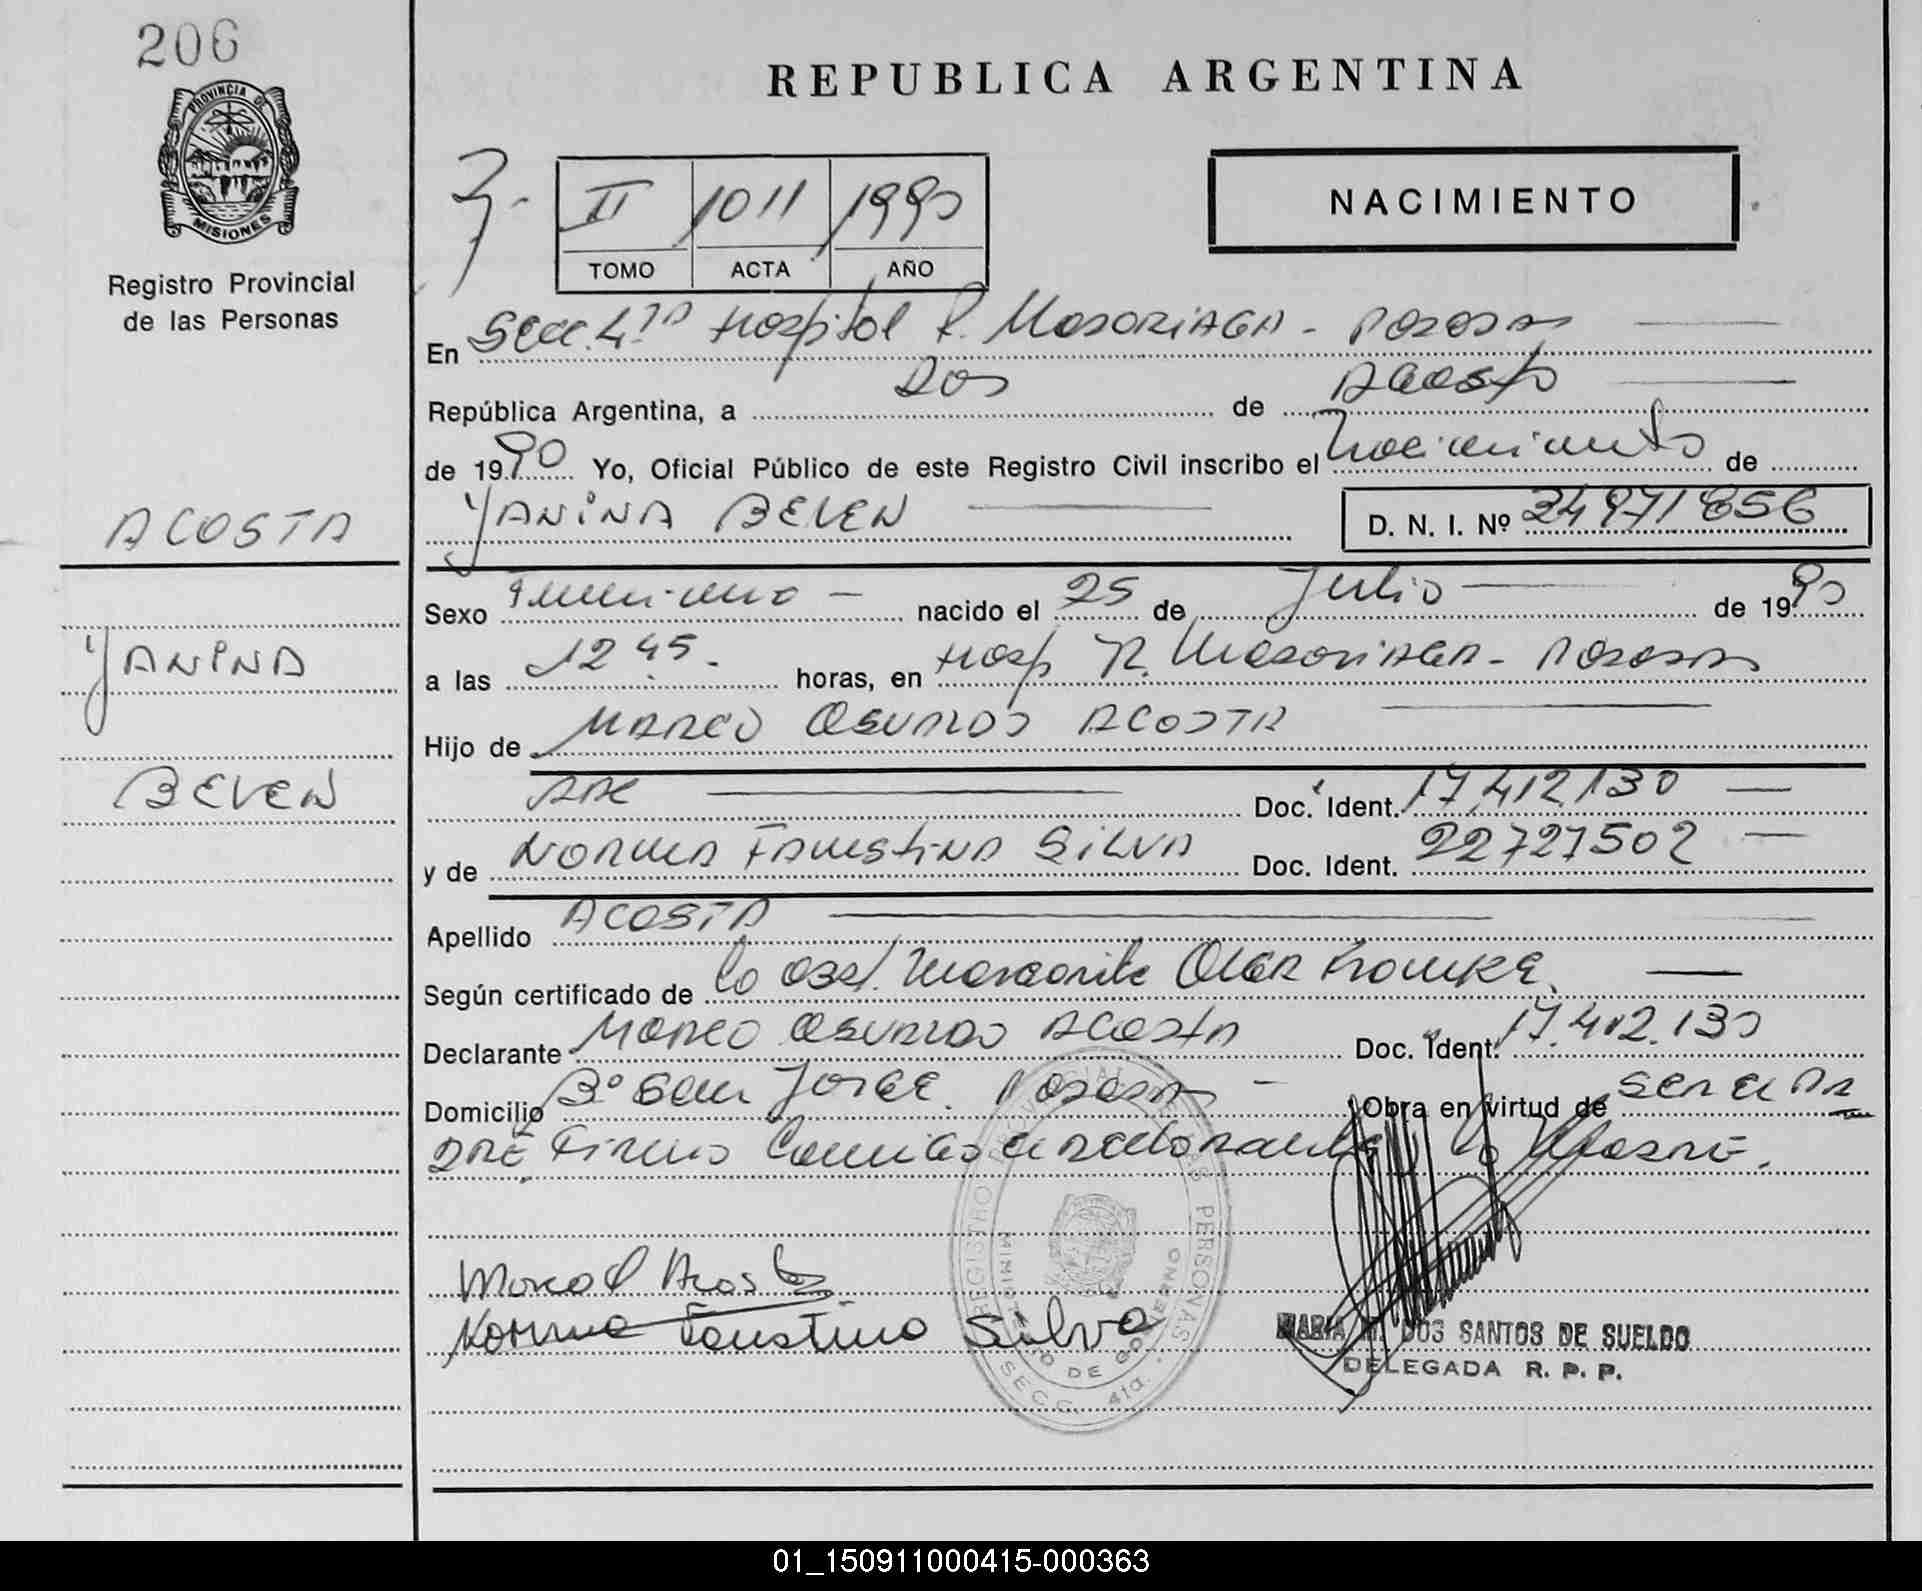 206
PROVINCIA DE
MISIONES
Registro Provincial
de las Personas
ACOSTA
YANINA
BELEN
REPUBLICA ARGENTINA
II 1011 1990
TOMO ACTA AÑO
NACIMIENTO
En Secc. 4ta Hospital R. Madariaga - Posadas
República Argentina, a Dos de Agosto
de 1990 Yo, Oficial Público de este Registro Civil inscribo el Nacimiento de
YANINA BELEN D. N. I. Nº 34971856
Sexo Femenino nacido el 25 de Julio de 1990
a las 12 45. horas, en Hosp R. Madariaga - Posadas
Hijo de MARCO OSVALDO ACOSTA
ARG Doc. Ident. 17.412.130
y de NORMA FAUSTINA SILVA Doc. Ident. 22727502
Apellido ACOSTA
Según certificado de la Obst. Margarita Olga
Declarante MARCO OSVALDO ACOSTA Doc. Ident. 17.412.130
Domicilio Bº San Jorge. Posadas - Obra en virtud de ser el PA
DRE Firma la Madre.
Norma Faustina Silva
REGISTRO PROVINCIAL DE LAS PERSONAS
MINISTERIO DE GOBIERNO
SECC. 4ta.
MARIA DOS SANTOS DE SUELDO
DELEGADA R. P. P.
01_150911000415-000363